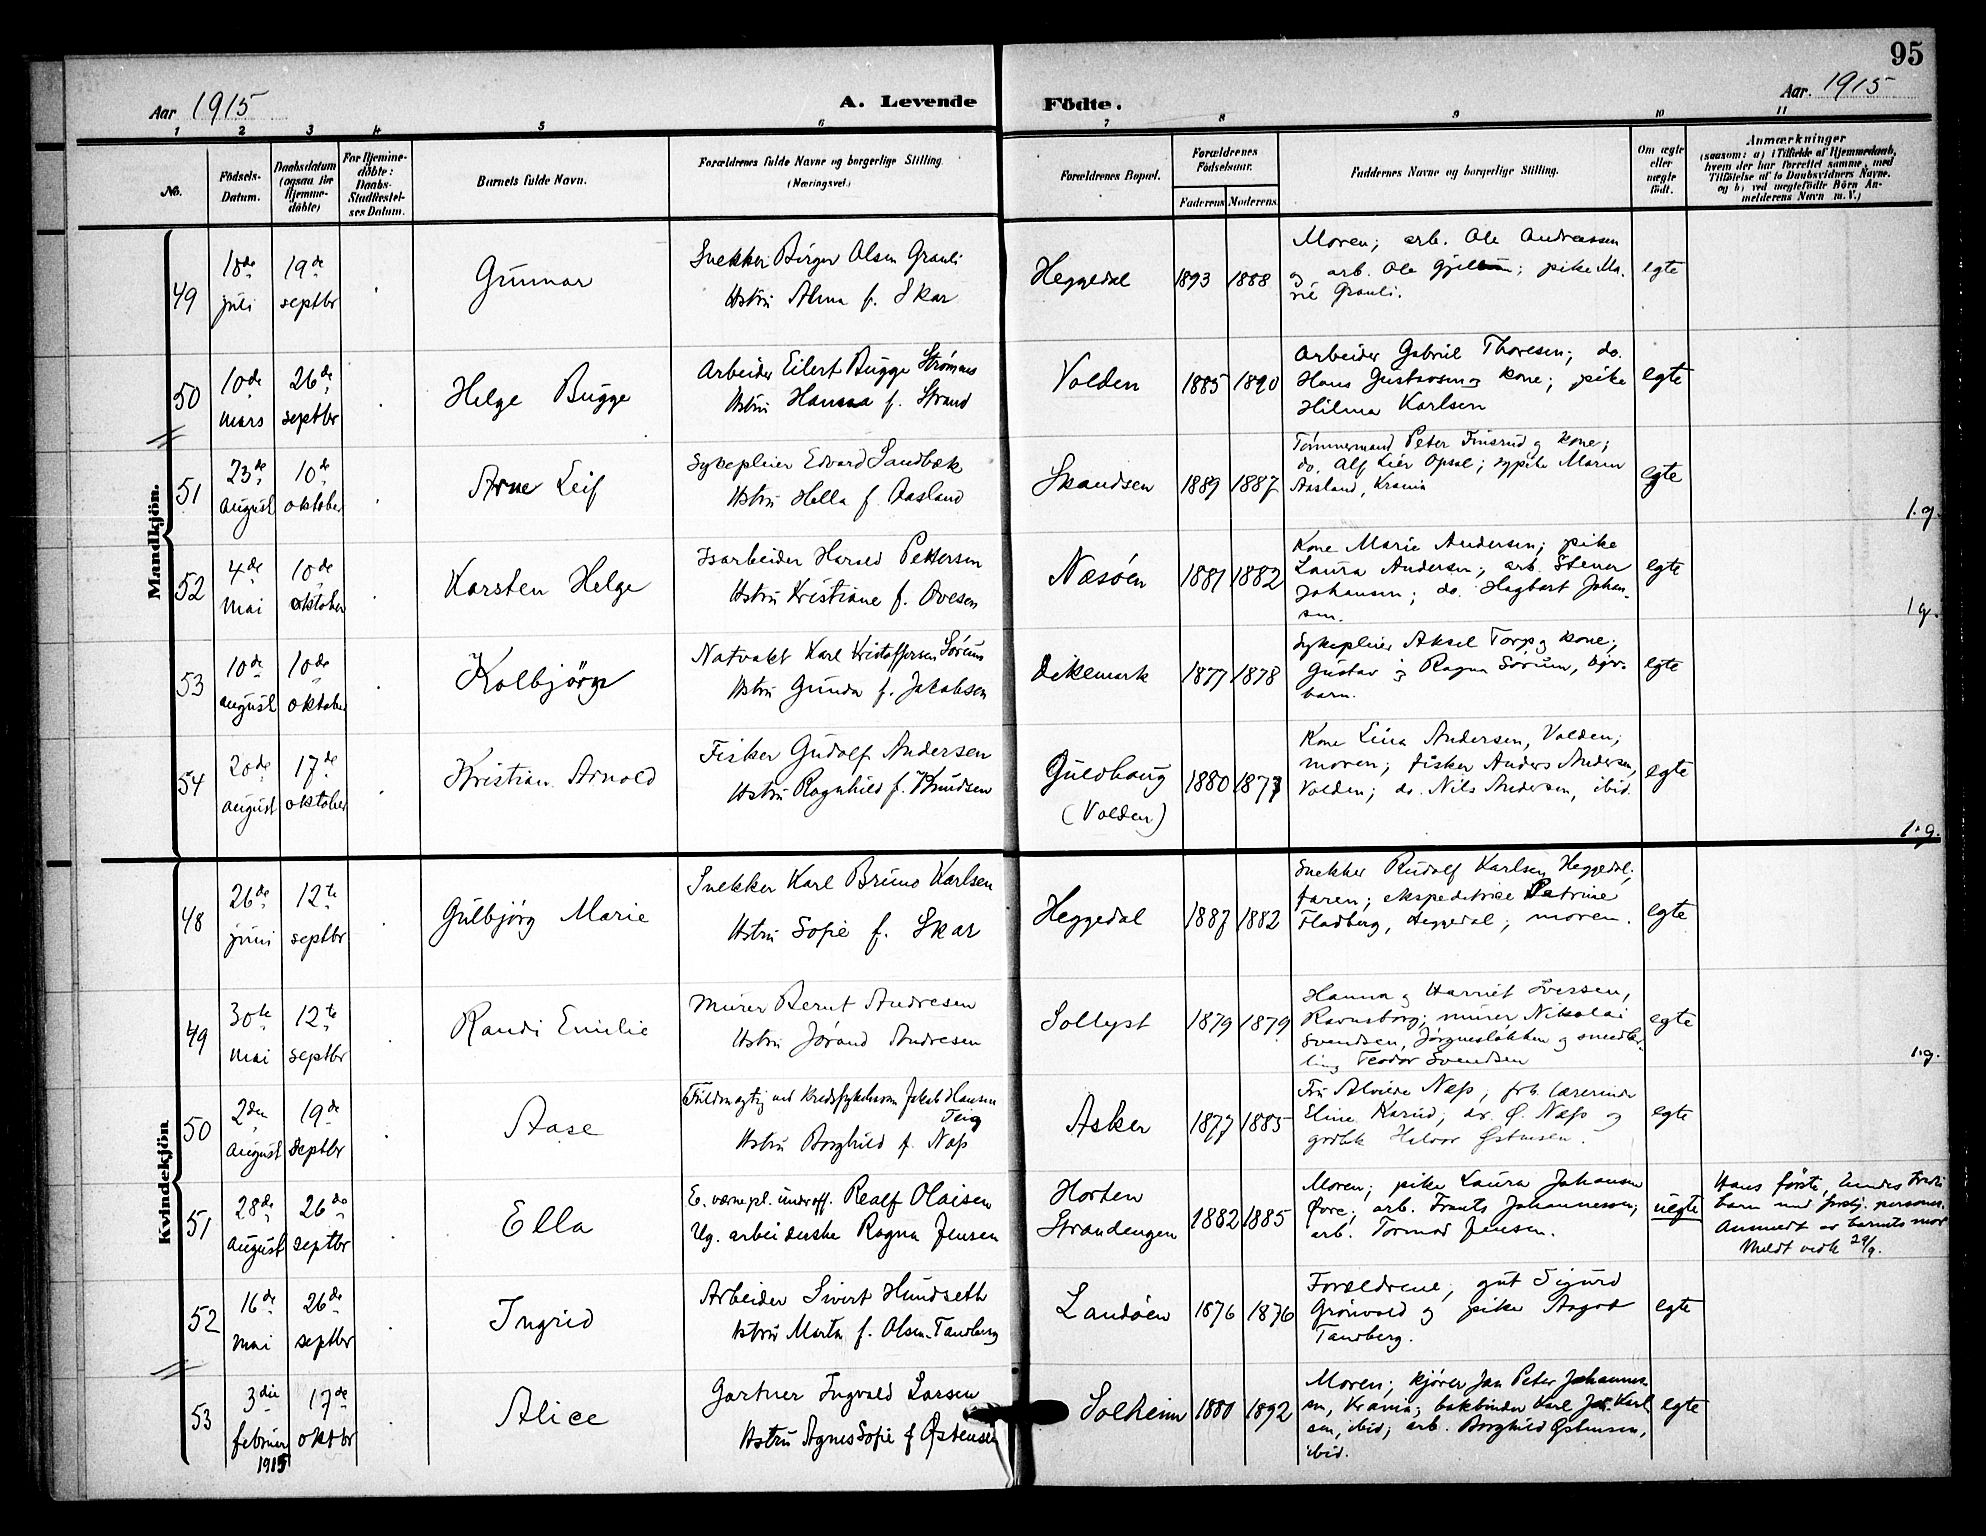 95
Aar 1915
A. Levende
Födte.
Aar. 1915
1 2 3 4 5 6 7 8 9 10 11
No.
Födsels-
Datum.
Daabsdatum
(ogsaa for
Hjemme-
döbte)
For Hjemme-
döbte:
Daabs-
Stadfæstel-
ses Datum.
Barnets fulde Navn.
Forældrenes fulde Navne og borgerlige Stilling.
(Næringsvei.)
Forældrenes Bopæl.
Forældrenes
Födselsaar.
Faderens Moderens
Faddernes Navne og borgerlige Stilling.
Om ægte
eller
uægte
født.
Anmærkninger
(saasom: a) i Tilfælde af Hjemmedaab,
hvem der har forrettet samme, med
Tilföielse af to Daabsvidners Navne.
og b) ved uægtefödte Börn An-
melderens Navn m. V.)
Mandkjön.
49
18de
juli
19de
septbr
Gunnar
Snekker Birger Olsen Grauli
Hstru Alma f. Skar
Heggedal
1893 1888
Moren; arb. Ole Andreassen
og arb. Ole; pike Ma-
rie Grauli.
egte
50
10de
mars
26de
septbr
Helge Bugge
Arbeider Eilert Bugge Strømnes
Hstru Hanna f. Strand
Volden
1885 1890
Arbeider Gabriel Thoresen; do.
Hans Gustavsen og kone; pike
Hilma Karlsen
egte
51
23de
august
10de
oktober
Arne Leif
Sykepleier Edvard Sandbæk
Hstru Helia f. Aasland
Skaudsen
1889 1887
Tømmermand Peter Finsrud og kone;
do. Alf Lier Opsal; sypike Maren
Aasland, Krania
egte
1.g.
52
4de
mai
10de
oktober
Karsten Helge
Isarbeider Harald Pettersen
Hstru Kristiane f. Ovesen
Næsøen
1881 1882
Kone Marie Andersen; pike
Laura Andersen; arb. Stener
Johansen; do. Hagbart Johan-
sen.
egte
1 g.
53
10de
august
10de
oktober
Kolbjörn
Natvakt Karl Kristoffersen Sørum
Hstru Gunda f. Jakobsen
Dikemark
1877 1878
Sykepleier Aksel Torp og kone;
Gustav og Ragna Sørum,
barn.
egte
54
20de
august
17de
oktober
Kristian Arnold
Fisker Gudolf Andersen
Hstru Ragnhild f. Knudsen
Guldhaug
(Volden)
1880 1877
Kone Lina Andersen, Volden;
moren; fisker Anders Andersen,
Volden; do. Nils Andersen, ibid.
egte
1.g.
Kvindekjön
48
26de
juni
12te
septbr
Gulbjørg Marie
Snekker Karl Bruno Karlsen
Hstru Sofie f. Skar
Heggedal
1887 1882
Snekker Rudolf Karlsen, Heggedal;
faren; ekspeditrice Petrine
Fladberg, Heggedal; moren.
egte
49
30te
mai
12te
septbr
Randi Emilie
Murer Bernt Andresen
Hstru Jørand Andresen
Sollyst
1879 1879
Hanna og Harriet Iversen,
Ravnsborg; murer Nikolai
Svendsen, Jørgensløkken og smedlær-
ling Teodor Svendsen
egte
1.g.
50
2den
august
19de
septbr
Aase
Fuldmægtig ved Kredssykekassen Jakob Hansen
Teig
Hstru Borghild f. Næss
Asker
1877 1885
Fru Alvilde Næss; frk. lærerinde
Eline; Ø. Næss og
grdbk Halvor Østensen.
egte
51
28de
august
26de
septbr
Ella
E. værnepl. underoff. Realf Olaisen
Ug. arbeiderske Ragna Jensen
Horten
Strandengen
1882 1885
Moren; pike Laura Johansen
Øvre; arb. Frants Johannesen;
arb. Tormod Jensen.
uegte
Hans første, hendes tredie
barn med forskj. personer.
Anmeldt av barnets mor
Meldt vedk 29/9.
52
16de
mai
26de
septbr
Ingrid
Arbeider Sivert Hundseth
Hstru Marta f. Olsen-Tandberg
Landøen
1876 1876
Forældrene; gut Sigurd
Grönvold og pike Aagot
Tandberg.
egte
53
3die
februar
1915
17de
oktbr
Alice
Gartner Ingvald Larsen
Hstru Agnes Sofie f Østensen
Solheim
1880 1892
Moren; kjører Jan Peter Johannes-
sen, Krania; bokbinder Karl Joh. Karl-
sen, ibid; arb. Borghild Østensen,
ibid.
egte